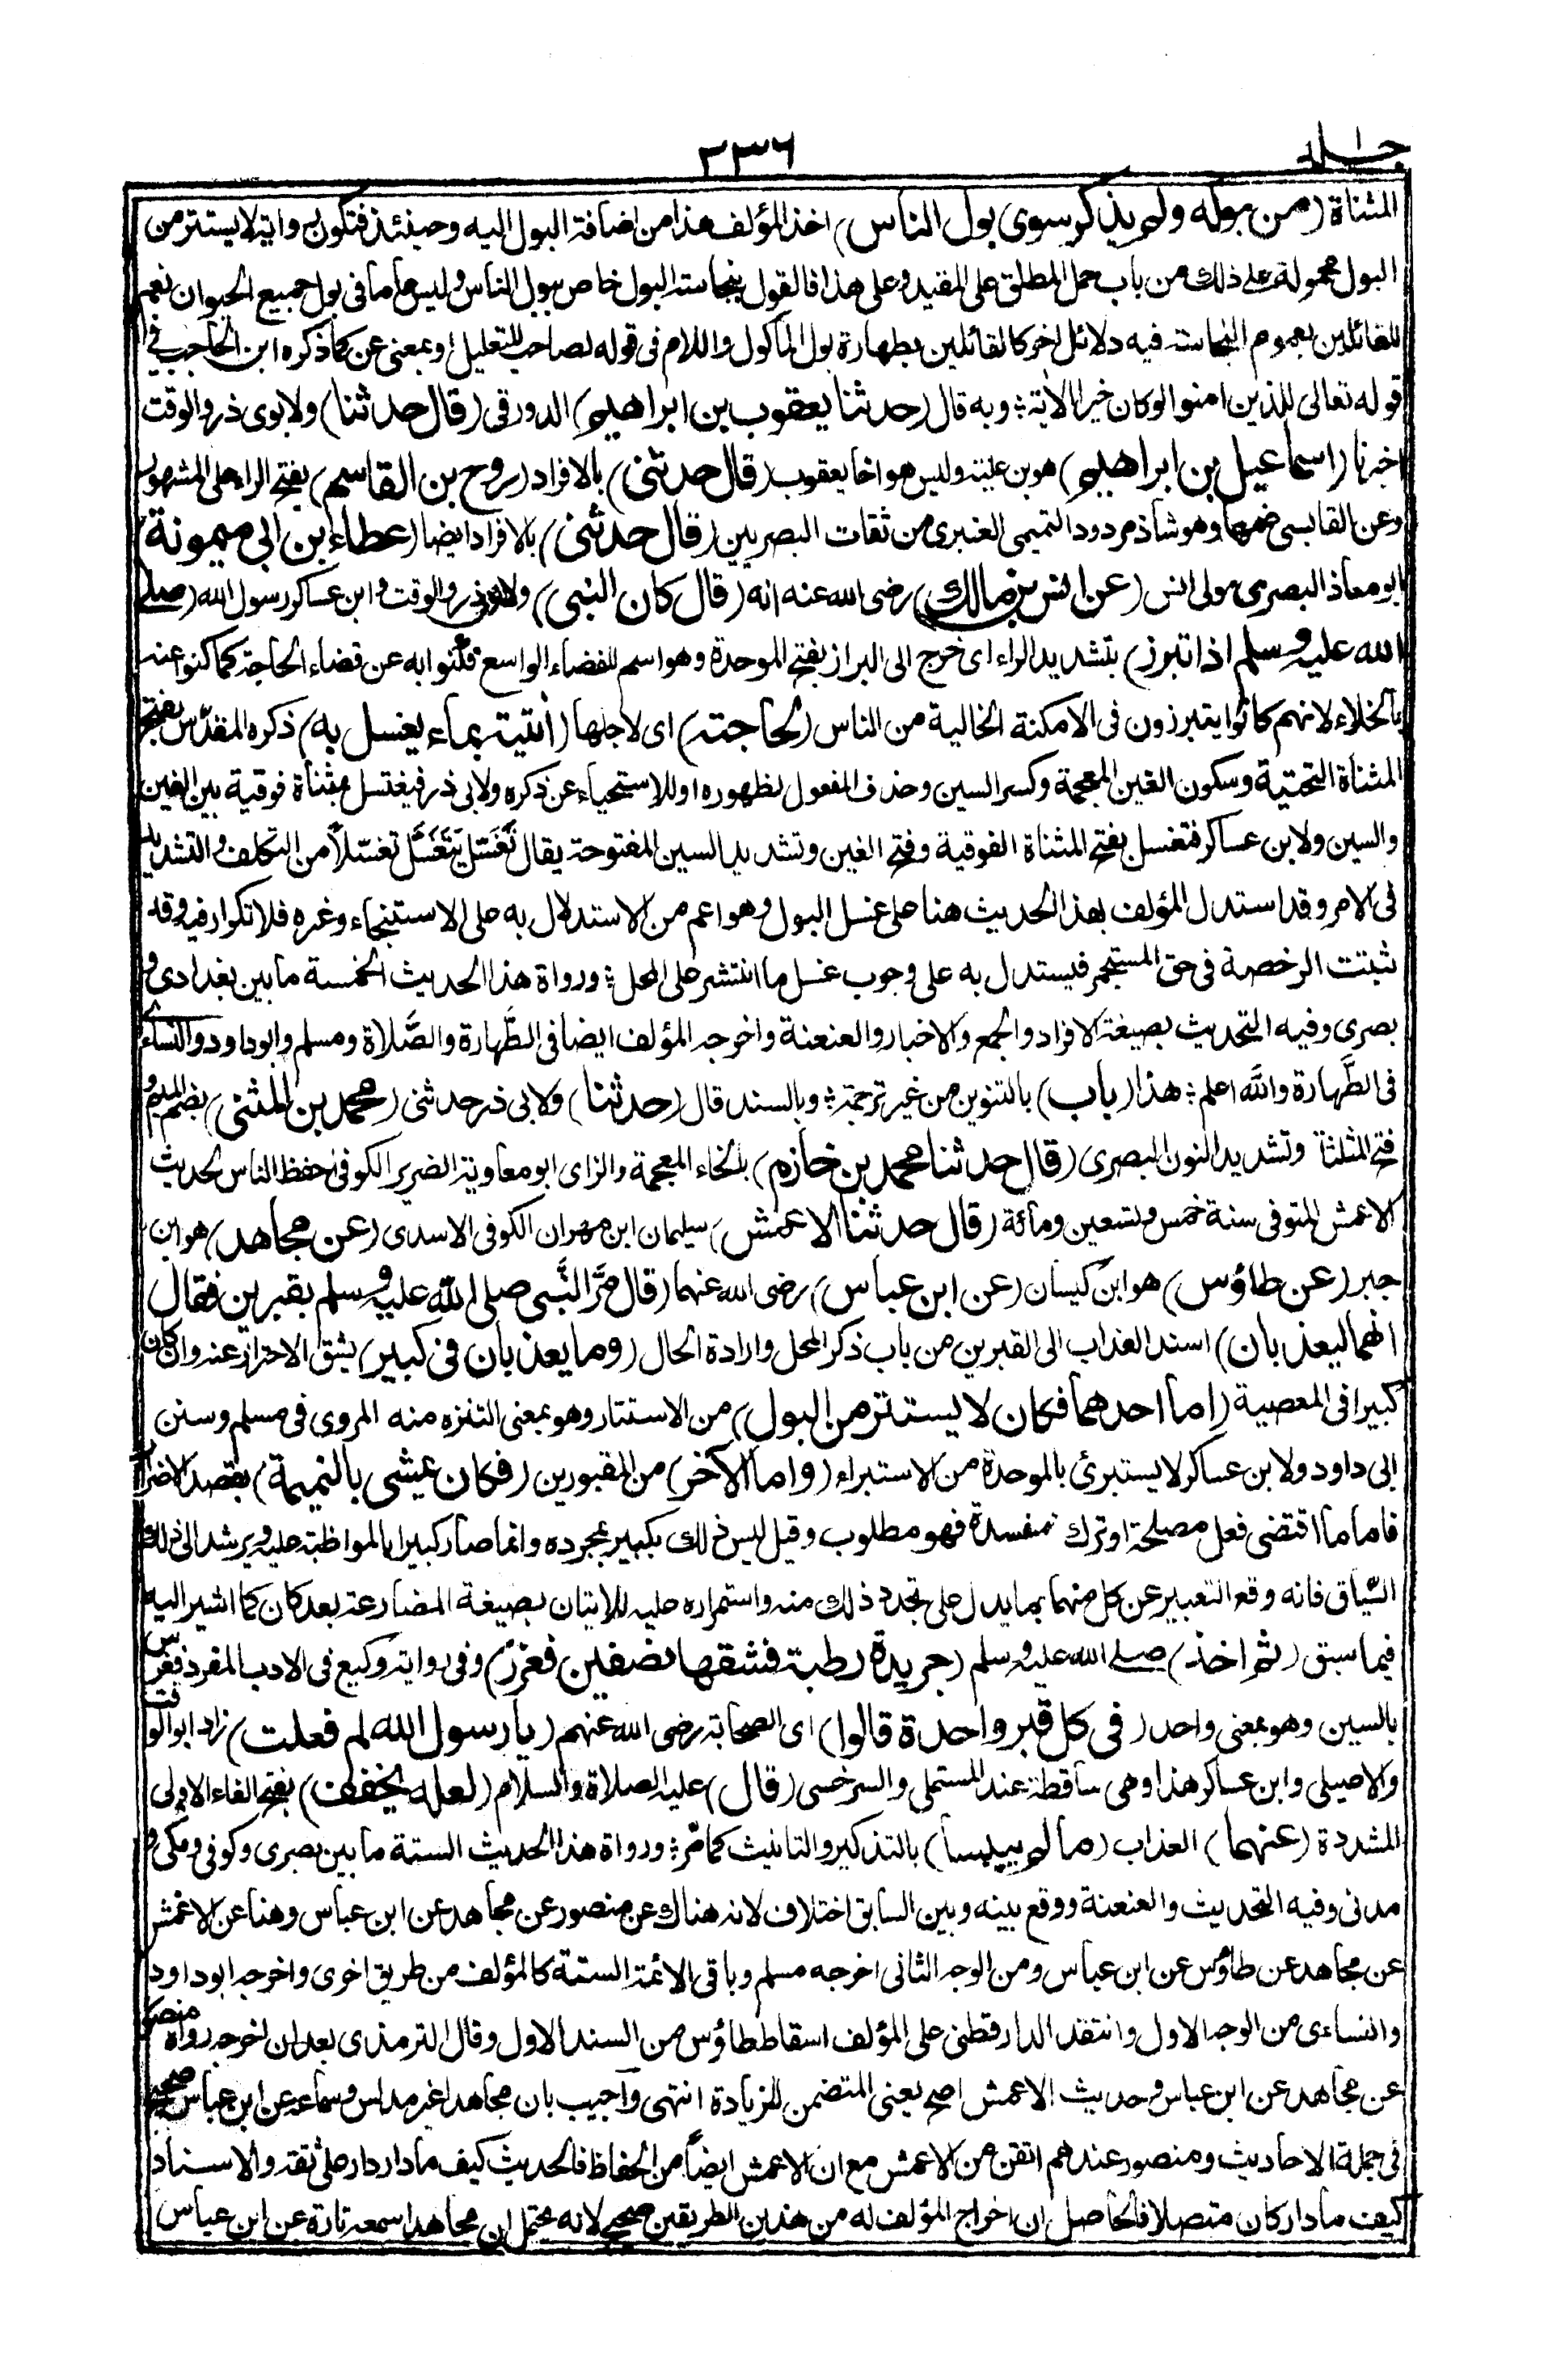 جلد ١
٢٣٦
المثناة (من بوله ولم يذكر سوى بول الناس) اخذ المؤلف هذا من اضافة البول اليه وحينئذ فتكون رواية لا يستتر من
البول محمولة على ذلك من باب حمل المطلق على المقيد وعلى هذا فالقول بنجاسة البول خاص ببول الناس وليس عاما فى بول جميع الحيوان نعم
للقائلين بعموم النجاسة فيه دلائل اخر كالقائلين بطهارة بول المأكول واللام فى قوله لصاحب للتعليل او بمعنى عن كما ذكره ابن الحاجب فى
قوله تعالى للذين امنوا لو كان خيرا الآية ؛ وبه قال (حدثنا يعقوب بن ابراهيم) الدورقى (قال حدثنا) ولابوى ذر والوقت
اخبرنا (اسماعيل بن ابراهيم) هو بن علية وليس هو اخا يعقوب (قال حدثنى) بالافراد (روح بن القاسم) بفتح الراء على المشهور
وعن القابسى ضمها وهو شاذ مردود التميمى العنبرى من ثقات البصريين (قال حدثنى) بالافراد ايضا (عطاء بن ابى ميمونة)
ابو معاذ البصرى مولى انس (عن انس بن مالك) رضى الله عنه انه (قال كان النبى) ولابوى ذر والوقت وابن عساكر رسول الله (صلى
الله عليه وسلم اذا تبرز) بتشديد الراء اى خرج الى البراز بفتح الموحدة وهو اسم للفضاء الواسع فكنوا به عن قضاء الحاجة كما كنوا عنه
بالخلاء لانهم كانوا يتبرزون فى الامكنة الخالية من الناس (لحاجته) اى لاجلها (أتيته بماء يغسل به) ذكره المقدس بفتح
المثناة التحتية وسكون الغين المعجمة وكسر السين وحذف المفعول لظهوره او للاستحياء عن ذكره ولابى ذر فيغتسل بمثناة فوقية بين الغين
والسين ولابن عساكر فتغسل بفتح المثناة الفوقية وفتح الغين وتشديد السين المفتوحة يقال تَغَسَّل يَتَغَسَّل تغسّلاً من التكلف والتشديد
فى الامر وقد استدل المؤلف بهذا الحديث هنا على غسل البول وهو اعم من الاستدلال به على الاستنجاء وغيره فلا تكرار فيه وقد
ثبتت الرخصة فى حق المستجمر فيستدل به على وجوب غسل ما انتشر على المحل ؛ ورواة هذا الحديث الخمسة ما بين بغدادى و
بصرى وفيه التحديث بصيغة الافراد والجمع والاخبار والعنعنة واخرجه المؤلف ايضا فى الطَّهارة والصَّلاة ومسلم وابو داود والنساءى
فى الطَّهارة والله اعلم ؛ هذا (باب) بالتنوين من غير ترجمة ؛ وبالسند قال (حدثنا) ولابى ذر حدثنى (محمد بن المثنى) بضم الميم و
فتح المثلثة وتشديد النون البصرى (قال حدثنا محمد بن خازم) بالخاء المعجمة والزاى ابو معاوية الضرير الكوفى احفظ الناس لحديث
الاعمش المتوفى سنة خمس وتسعين ومائة (قال حدثنا الاعمش) سليمان ابن مهران الكوفى الاسدى (عن مجاهد) هو ابن
جبر (عن طاؤس) هو ابن كيسان (عن ابن عباس) رضى الله عنهما (قال مرَّ النَّبى صلى الله عليه وسلم بقبرين فقال
انهما ليعذبان) اسند العذاب الى القبرين من باب ذكر المحل وارادة الحال (وما يعذبان فى كبير) يشق الاحتراز عنه وان كان
كبيرا فى المعصية (اما احدهما فكان لا يستتر من البول) من الاستتار وهو بمعنى التنزه منه المروى فى مسلم وسنن
ابى داود ولابن عساكر لا يستبرئ بالموحدة من الاستبراء (واما الآخر) من المقبورين (فكان يمشى بالنميمة) بقصد الاضرار
فاما ما اقتضى فعل مصلحة او ترك مفسدة فهو مطلوب وقيل ليس ذلك بكبير بمجرده وانما صار كبيرا بالمواظبة عليه ويرشد الى ذلك
السّياق فانه وقع التعبير عن كل منهما بما يدل على تجدد ذلك منه واستمراره عليه للاتيان بصيغة المضارعة بعد كان كما اشير اليه
فيما سبق (ثم اخذ) صلى الله عليه وسلم (جريدة رطبة فشقها نصفين فغرز) وفى رواية وكيع فى الادب المفرد فغرس
بالسين وهو بمعنى واحد (فى كل قبر واحدة قالوا) اى الصحابة رضى الله عنهم (يا رسول الله لم فعلت) زاد ابو الوقت
والاصيلى وابن عساكر هذا وهى ساقطة عند المستملى والسرخسى (قال) عليه الصلاة والسلام (لعله يخفف) بفتح الفاء الاولى
المشددة (عنهما) العذاب (ما لم ييبسا) بالتذكير والتانيث كما مرّ ؛ ورواة هذا الحديث الستة ما بين بصرى وكوفى ومكى و
مدنى وفيه التحديث والعنعنة ووقع بينه وبين السابق اختلاف لانه هناك عن منصور عن مجاهد عن ابن عباس وهنا عن الاعمش
عن مجاهد عن طاؤس عن ابن عباس ومن الوجه الثانى اخرجه مسلم وباقى الائمة الستة كالمؤلف من طريق اخرى واخرجه ابو داود
والنساءى من الوجه الاول وانتقد الدارقطنى على المؤلف اسقاط طاؤس من السند الاول وقال الترمذى بعد ان اخرجه رواه منصور
عن مجاهد عن ابن عباس وحديث الاعمش اصح يعنى المتضمن للزيادة انتهى وأجيب بان مجاهدا غير مدلس وسماعه عن ابن عباس صحيح
فى جملة الاحاديث ومنصور عندهم اتقن من الاعمش مع ان الاعمش ايضاً من الحفاظ فالحديث كيف ما دار دار على ثقة والاسناد
كيف ما دار كان متصلا فالحاصل ان اخراج المؤلف له من هذين الطريقين صحيح لانه يحتمل ان مجاهدا سمعه تارة عن ابن عباس